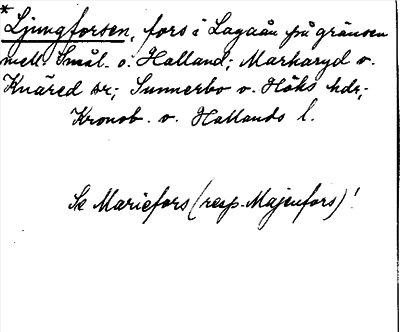 * Ljungforsen, fors i Lagaån på gränsen
mell. Smål. o. Halland; Markaryd o.
Knäred sr; Sunnerbo o. Höks hdr;
Kronob. o. Hallands l.
Se Mariefors (resp. Majenfors)!